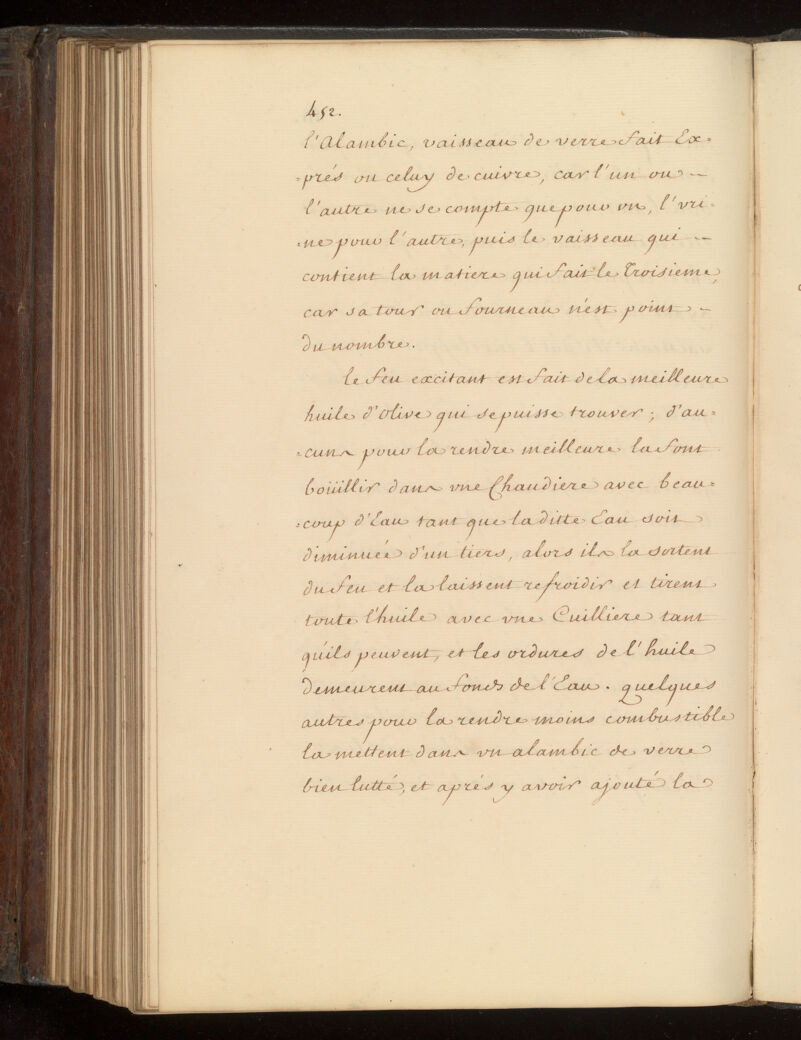 452.
l'Alambic, vaisseau de verre fait Ex=
=prés ou celuy de cuivre, car l'un ou –
l'autre ne se compte que pour un, l'vri=
=ne pour l'autre, puis le vaisseau qui –
contient la matiere qui fait le Troisieme,
car sa tour ou fourneau n'est point –
du nombre.
le feu excitant est fait de la meilleure
huile d'olive qui se puisse trouver ; d'au=
=cuns pour la rendre meilleure la font
boüillir dans vne Chaudiere avec beau=
=coup d'Eau tant que laditte Eau soit
diminuée d'un tiers, alors ils la sortent
du feu et la laissent refroidir et tirent
toute l'huile avec vne Cuilliere tant
qu'ils peuvent, et les ordures de l'huile
demeurent au fonds de l'Eau. quelques
autres pour la rendre moins combustible
la mettent dans vn alambic de verre
bien lutté, et aprés y avoir ajouté la